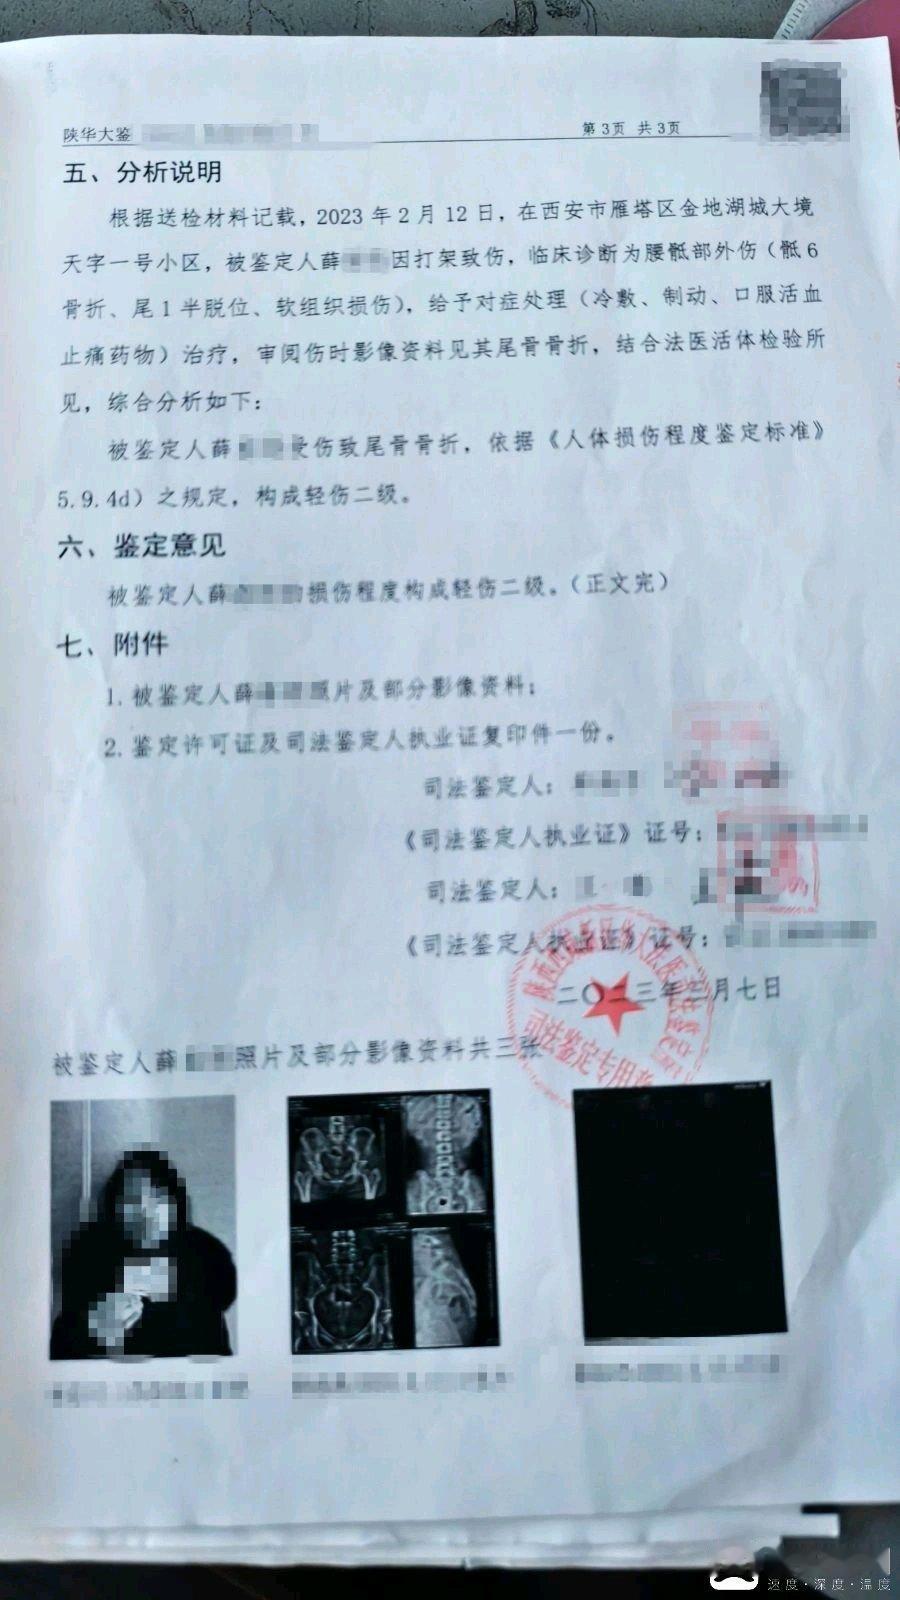 陕华大鉴
第3页 共3页
五、分析说明
根据送检材料记载，2023年2月12日，在西安市雁塔区金地湖城大境
天字一号小区，被鉴定人薛因打架致伤，临床诊断为腰骶部外伤（骶6
骨折、尾1半脱位、软组织损伤），给予对症处理（冷敷、制动、口服活血
止痛药物）治疗，审阅伤时影像资料见其尾骨骨折，结合法医活体检验所
见，综合分析如下：
被鉴定人薛受伤致尾骨骨折，依据《人体损伤程度鉴定标准》
5.9.4d）之规定，构成轻伤二级。
六、鉴定意见
被鉴定人薛的损伤程度构成轻伤二级。（正文完）
七、附件
1.被鉴定人薛照片及部分影像资料；
2.鉴定许可证及司法鉴定人执业证复印件一份。
司法鉴定人：
《司法鉴定人执业证》证号：
司法鉴定人：
《司法鉴定人执业证》证号：
二〇二三年三月七日
司法鉴定专用章
被鉴定人薛照片及部分影像资料共三张
速度·深度·温度